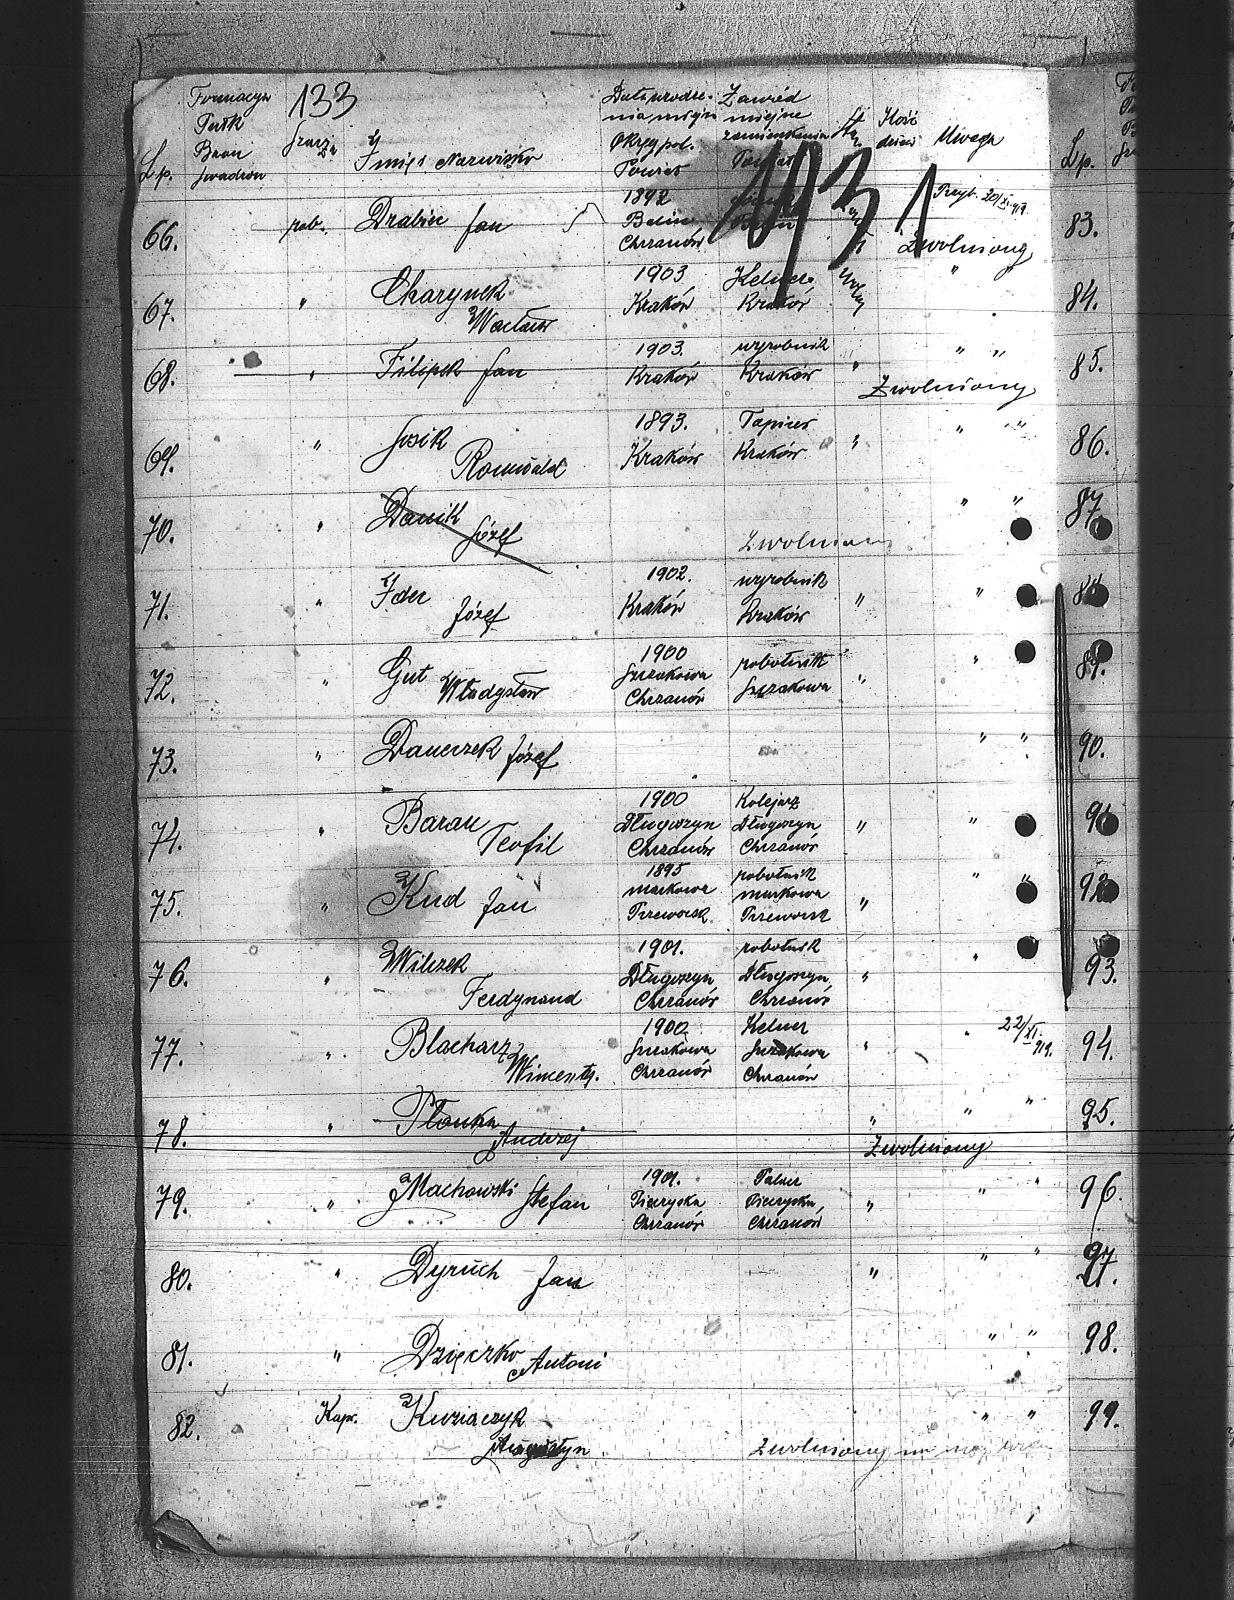 Formacya
Pułk
Baon
Szwadron
133
Lp.
Szarża
Imię i Nazwisko
Data urodze-
nia miejsce
Okręg pol.
Powiat
Zawód
miejsce
zamieszkania
Powiat
Ilość
dzieci
Uwaga
Lp.
193 1
66. rob. Drabik Jan
1892
Chrzanów
Przyb. 20/XI. 919.
Zwolniony
83.
67. "
Wacław
1903
Kraków
Kelner
Kraków
" "
84.
68. " Filipek Jan
1903.
Kraków
wyrobnik
Kraków
" " "
Zwolniony
85.
69. " Josik
Romuald
1893.
Kraków
Tapicer
Kraków
" " "
86.
70. " Danik
Józef
Zwolniony
" "
87
71. "
Józef
1902.
Kraków
wyrobnik
Kraków
" "
88
72. " Gut
Władysław
1900
Szczakowa
Chrzanów
robotnik
Szczakowa
" "
89.
73. " Daneczek Józef
" "
90.
74. " Baran
Teofil
1900
Długoszyn
Chrzanów
Kolejarz
Długoszyn
Chrzanów
" "
91
75. " Kud Jan
1895
Markowa
Przeworsk
robotnik
Markowa
Przeworsk
" " "
92
76. " Wilczek
Ferdynand
1901.
Długoszyn
Chrzanów
robotnik
Długoszyn
Chrzanów
" "
93.
77. " Blacharz
Wincenty.
1900
Szczakowa
Chrzanów
Kelner
Szczakowa
Chrzanów
" " 22/XI. 919.
94.
78. " Płonka
Andrzej
" " "
Zwolniony
95.
79. " Machowski Stefan
1901.
Pieczyska
Chrzanów
Palacz
Pieczyska
Chrzanów
" " "
96.
80. " Dyruch Jan
" " "
97.
81. " Dzięczko Antoni
" "
98.
82. Kapr. Kuziaczyk
Augustyn
" "
Zwolniony
99.